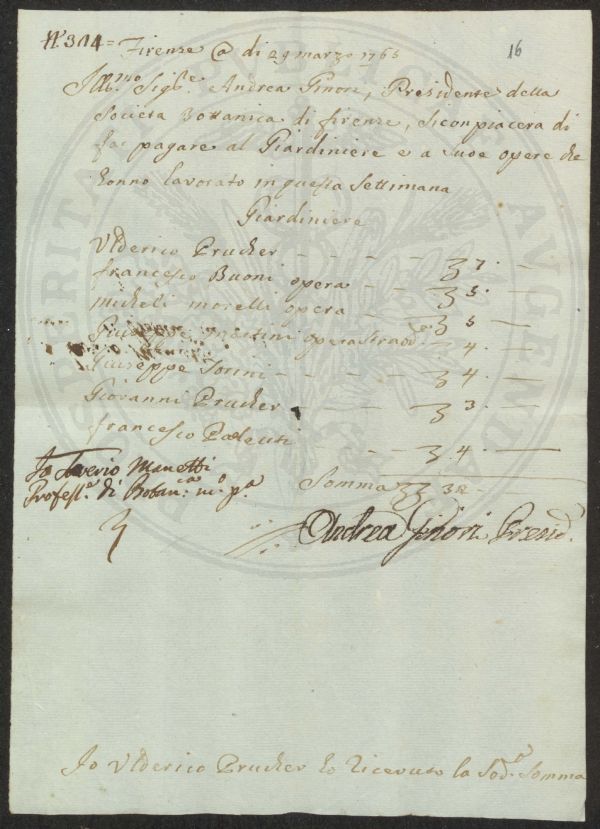 N°. 304 =
16
Firenze @ di 29 marzo 1765
Ill.mo Sig.re Andrea Ginori, Presidente della
Società Bottanica di firenze, si conpiacera di
far pagare al Giardiniere e a Sue opere che
hanno lavorato in questa Settimana
Giardiniere
Ulderico Prucher - - - - 7. -
francesco Buoni opera - - - 5. -
Micheli morelli opera - - 5 -
Martini opera straord. 4. -
Giuseppe Sonni - - - - 4. -
Giovanni Prucher - - - 3. -
francesco - 4. -
Somma 32
Io Saverio Manetti
Profess.e di Botan.ca m.o p.a
Andrea Ginori Presid.
Io Ulderico Prucher ho ricevuto la Sod.a Somma